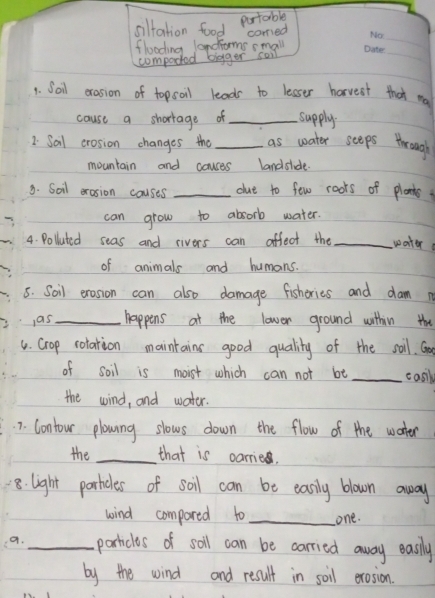 siltation food portable
carried
flooding landforms small
compacted bigger soil
No:
Date:
1. Soil erosion of topsoil leads to lesser harvest that may
cause a shortage of ______ supply.
2. Soil erosion changes the ______ as water seeps through
mountain and causes landslide.
3. Soil erosion causes ______ due to few roots of plants
can grow to absorb water.
4. Polluted seas and rivers can affect the ______ water
of animals and humans.
5. Soil erosion can also damage fisheries and dam
,as ______ happens at the lower ground within the
6. Crop rotation maintains good quality of the soil.
of soil is moist which can not be ______ easily
the wind, and water.
7. Contour plowing slows down the flow of the water
the ______ that is carries.
8. Light particles of soil can be easily blown away
wind compared to ______ one.
9. ______ particles of soil can be carried away easily
by the wind and result in soil erosion.